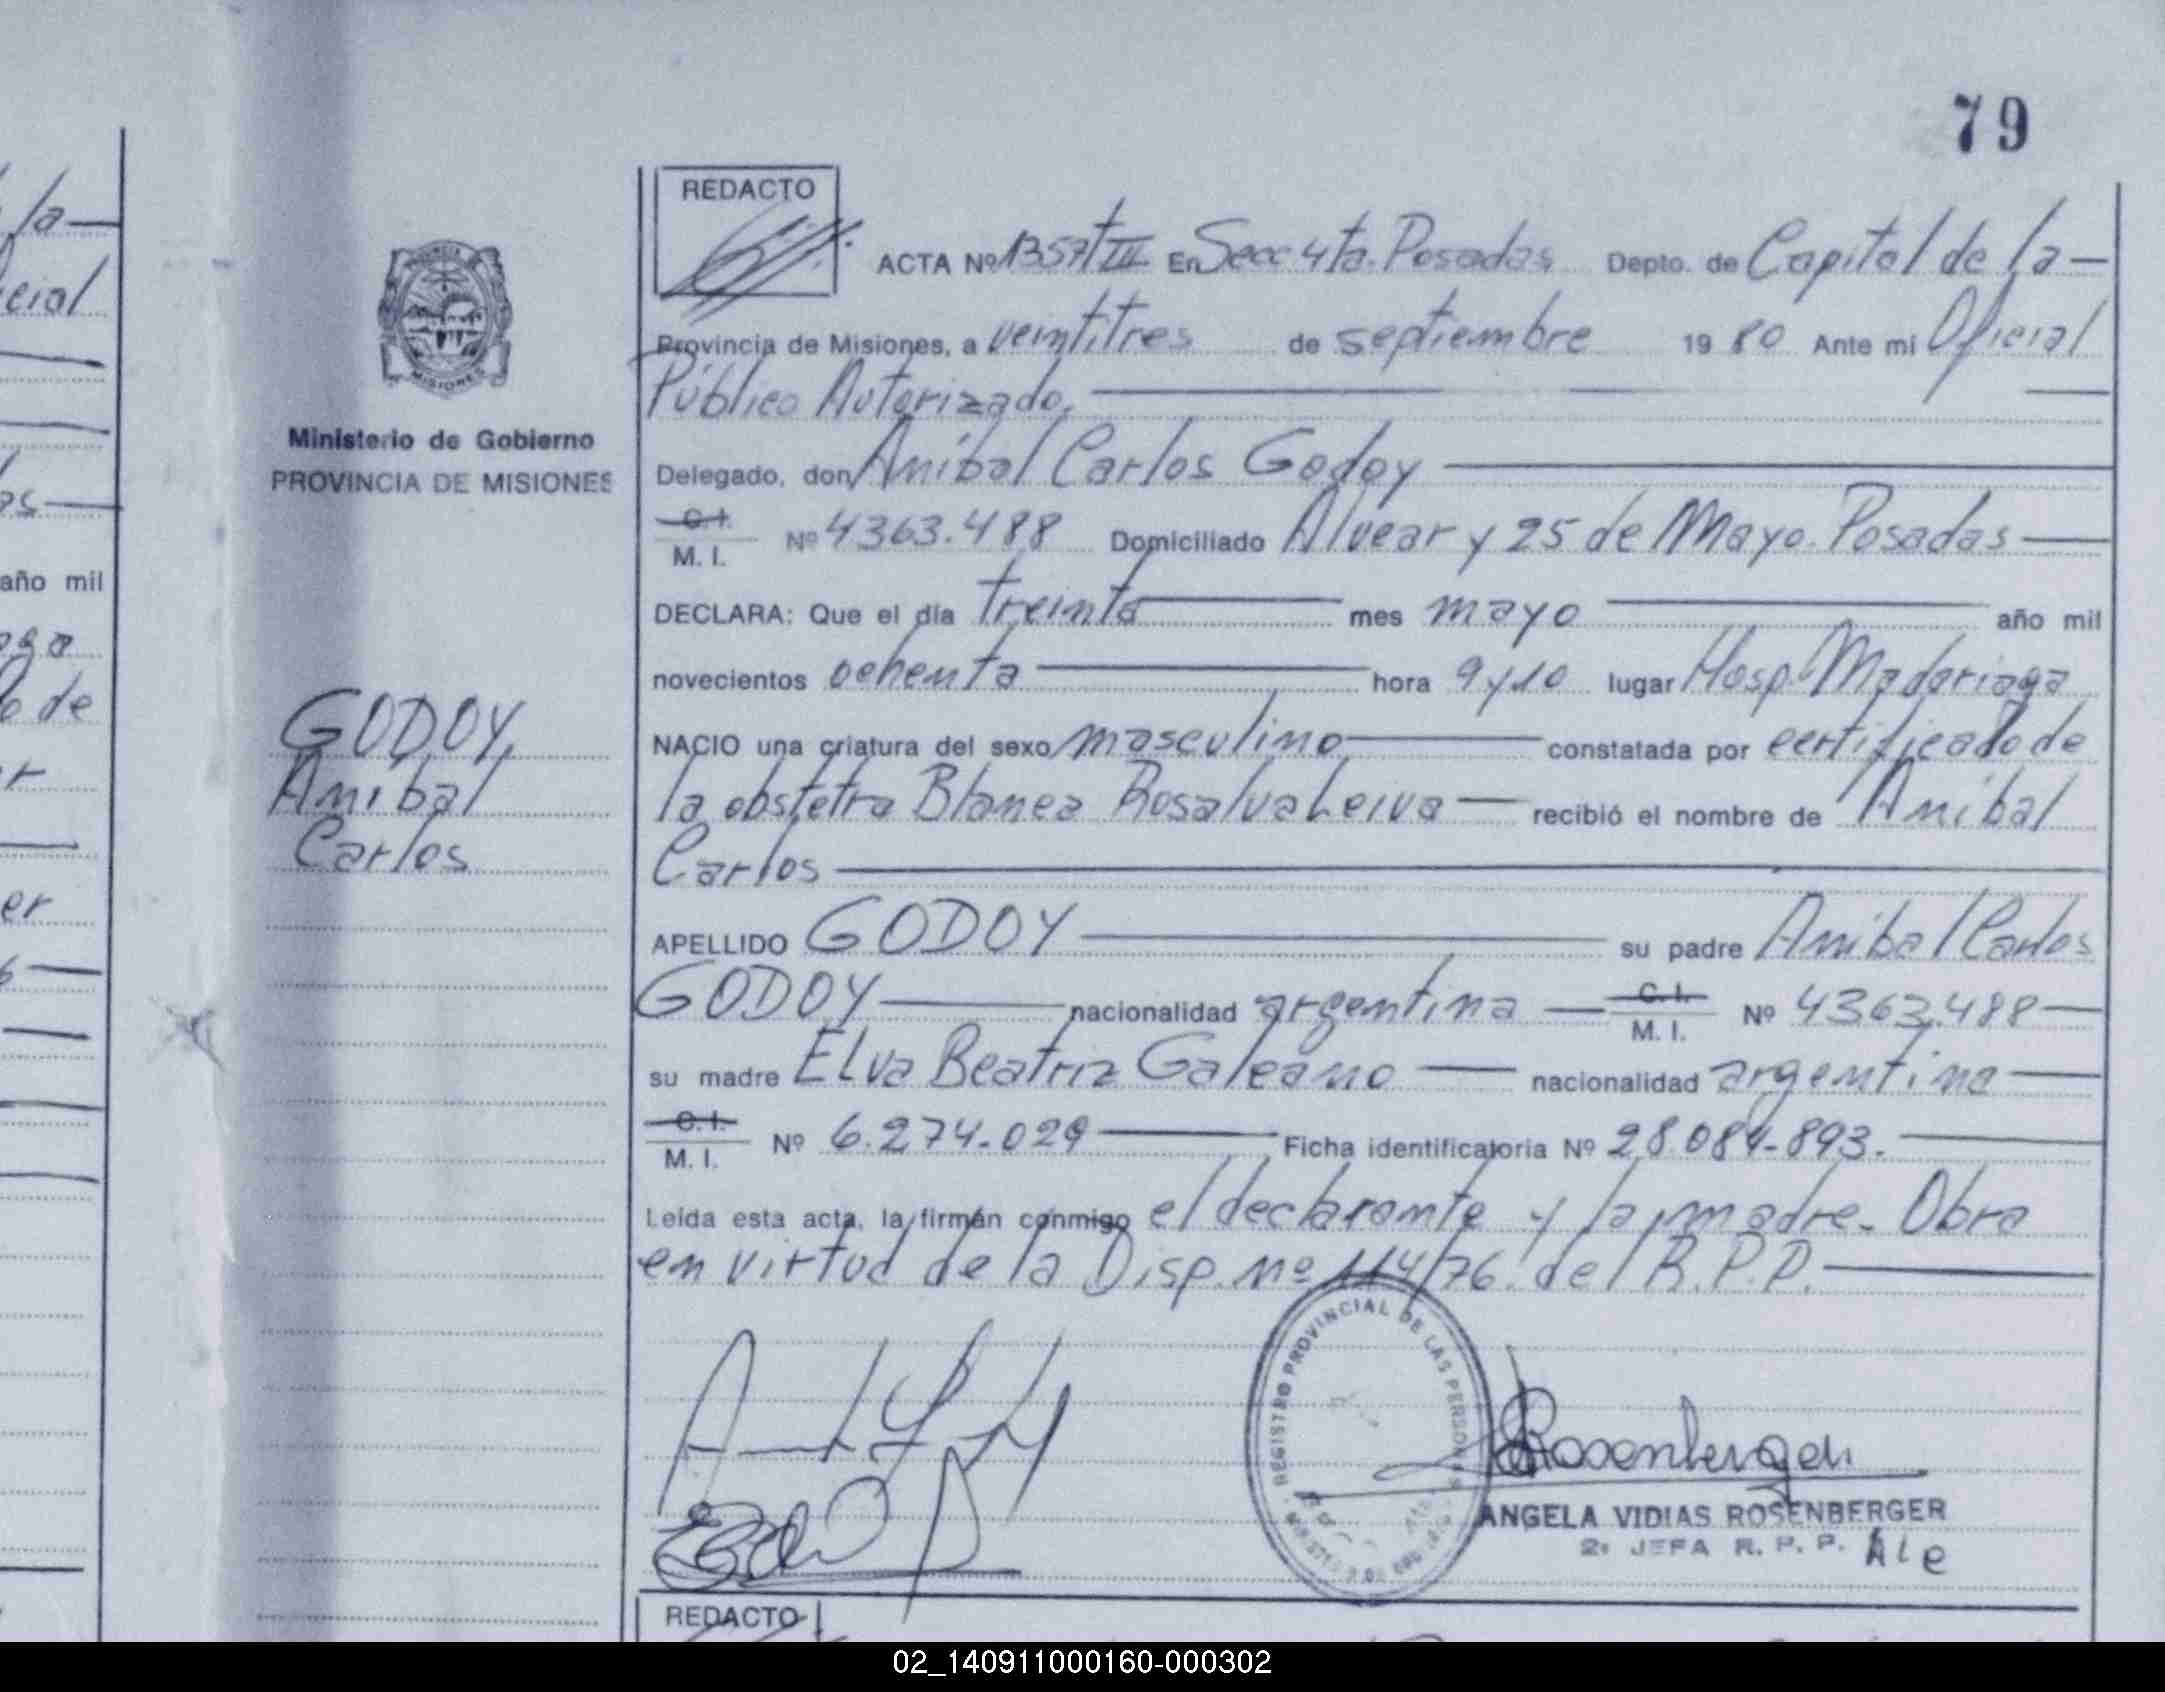 79
REDACTO
ACTA Nº 1357 tIII En Secc 4ta. Posadas Depto. de Capital de la
Provincia de Misiones, a veintitres de septiembre 19 80 Ante mi Oficial
Público Autorizado.
Delegado, don Anibal Carlos Godoy
C.I.
M. I. Nº 4363.488 Domiciliado Alvear y 25 de Mayo. Posadas
DECLARA: Que el día treinta mes mayo año mil
novecientos ochenta hora 9 y 10 lugar Hosp. Madariaga
NACIO una criatura del sexo masculino constatada por certificado de
la obstetra Blanca Rosalva Leiva recibió el nombre de Anibal
Carlos
APELLIDO GODOY su padre Anibal Carlos
GODOY nacionalidad argentina C.I. M. I. Nº 4363.488
su madre Elva Beatriz Galeano nacionalidad argentina
C.I.
M. I. Nº 6.274.029 Ficha identificatoria Nº 28.084.893.
Leída esta acta, la firmán conmigo el declarante y la madre. Obra
en virtud de la Disp. nº 114/76. del R.P.P.
REGISTRO PROVINCIAL DE LAS PERSONAS
Rosenberger
ANGELA VIDIAS ROSENBERGER
2ª JEFA R. P. P. Ale
REDACTO
MISIONES
Ministerio de Gobierno
PROVINCIA DE MISIONES
GODOY,
Anibal
Carlos
la
cial
año mil
de
er
02_140911000160-000302